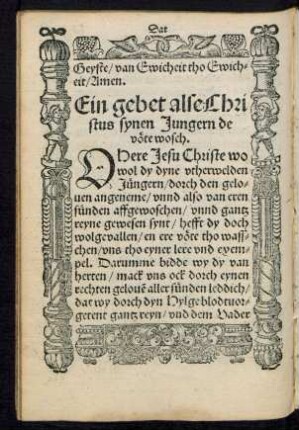 Dat
Geyste/ van Ewicheit tho Ewich-
eit/ Amen.
Ein gebet alse Chri
stus synen Jungern de
vöte wosch.
O Here Jesu Christe wo
wol dy dyne vtherwelden
Jüngern/ dorch den gelo-
uen angeneme/ vnnd also van eren
sünden affgewoschen/ vnnd gantz
reyne gewesen synt/ hefft dy doch
wolgevallen/ en ere vöte tho wasz-
schen/ vns tho eyner lere vnd exem-
pel. Darumme bidde wy dy van
herten/ mack vns ock dorch eynen
rechten gelouē aller sünden leddich/
dat wy dorch dyn Hylge blodt vor-
getent gantz reyn/ vnd dem Vader